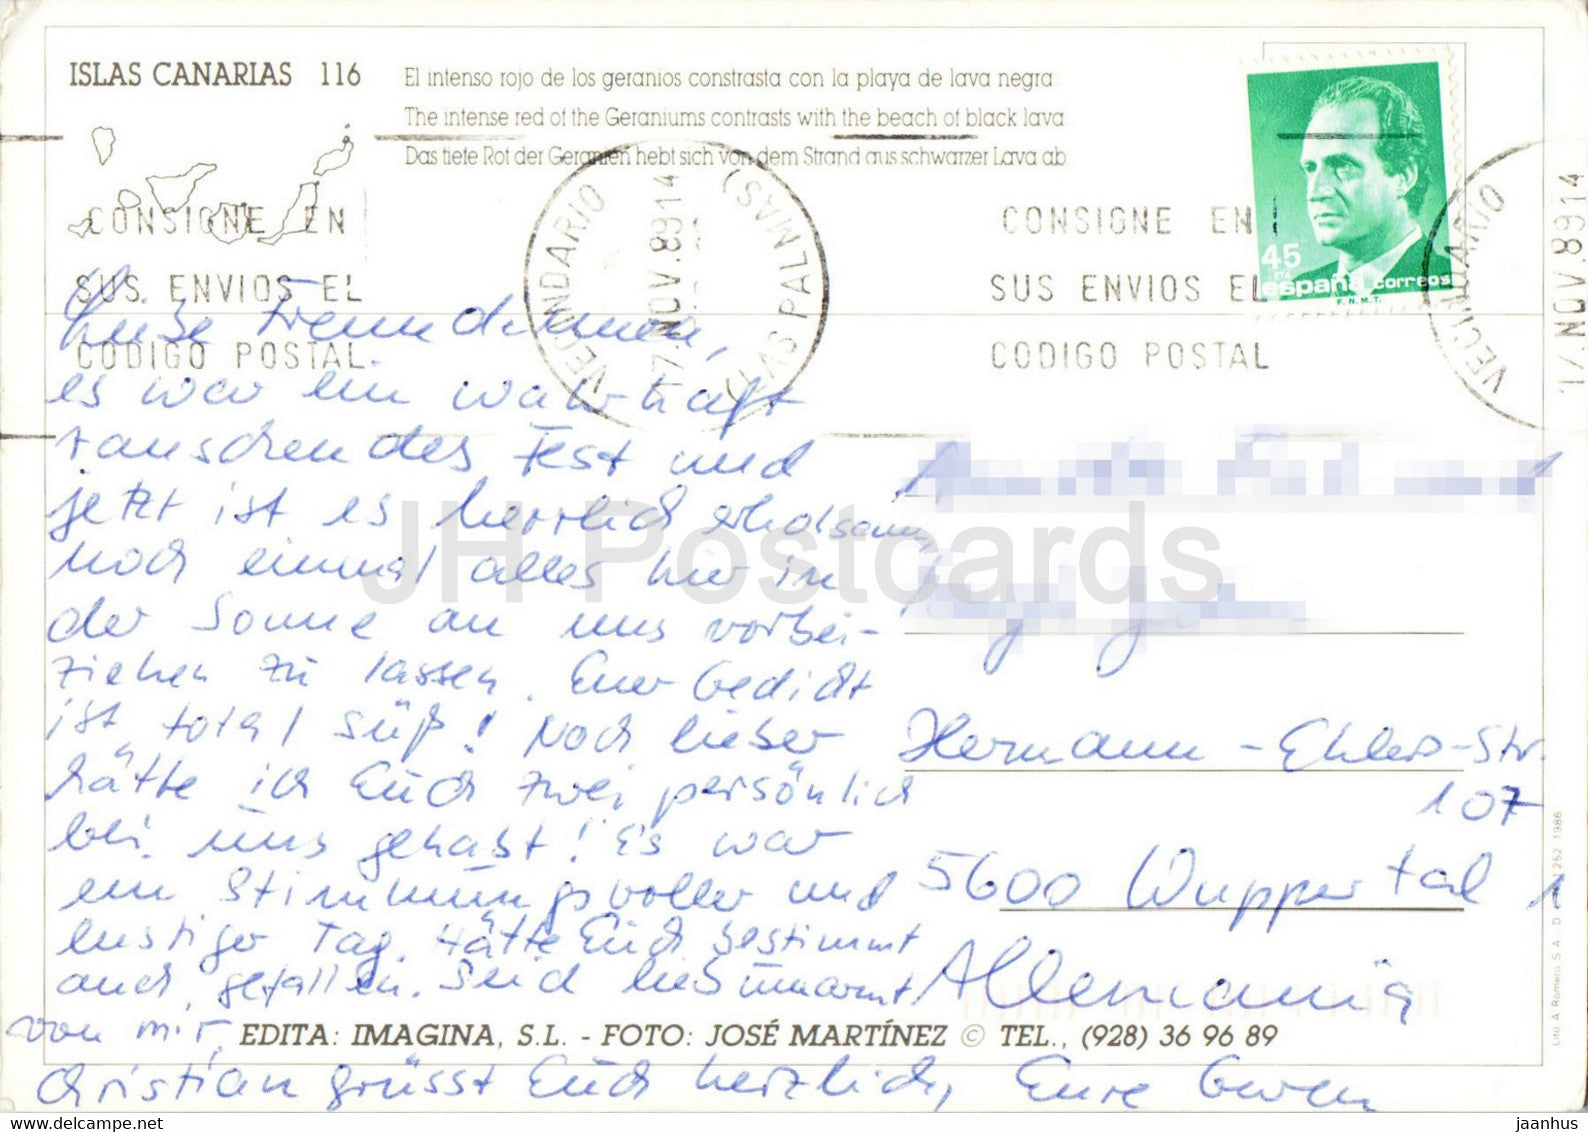 ISLAS CANARIAS 116
El intenso rojo de los geranios constrasta con la playa de lava negra
The intense red of the Geraniums contrasts with the beach of black lava
Das tiefe Rot der Geranien hebt sich von dem Strand aus schwarzer Lava ab
CONSIGNE EN
SUS ENVIOS EL
CODIGO POSTAL
VECINDARIO
17.NOV.89 14
(LAS PALMAS)
CONSIGNE EN
SUS ENVIOS EL
CODIGO POSTAL
VECINDARIO
17.NOV.89 14
45
PTA
españa correos
F.N.M.T.
Liebe
es war ein wahrhaft
rauschendes Fest und
jetzt ist es herrlich erholsam,
noch einmal alles hier in
der Sonne an uns vorbei-
ziehen zu lassen. Euer Gedicht
ist total süß! Noch lieber
hätte ich Euch zwei persönlich
bei uns gehabt! Es war
ein stimmungsvoller und
lustiger Tag. Hätte Euch bestimmt
auch gefallen. Seid lieb umarmt
von mir,
Christian grüsst Euch herzlich, Eure Gwen
Hermann-Ehlers-Str.
107
5600 Wuppertal 1
Allemania
EDITA: IMAGINA, S.L. - FOTO: JOSÉ MARTÍNEZ © TEL., (928) 36 96 89
Lito A. Romero S.A. - D 252 1986
JH Postcards
www.delcampe.net
jaanhus